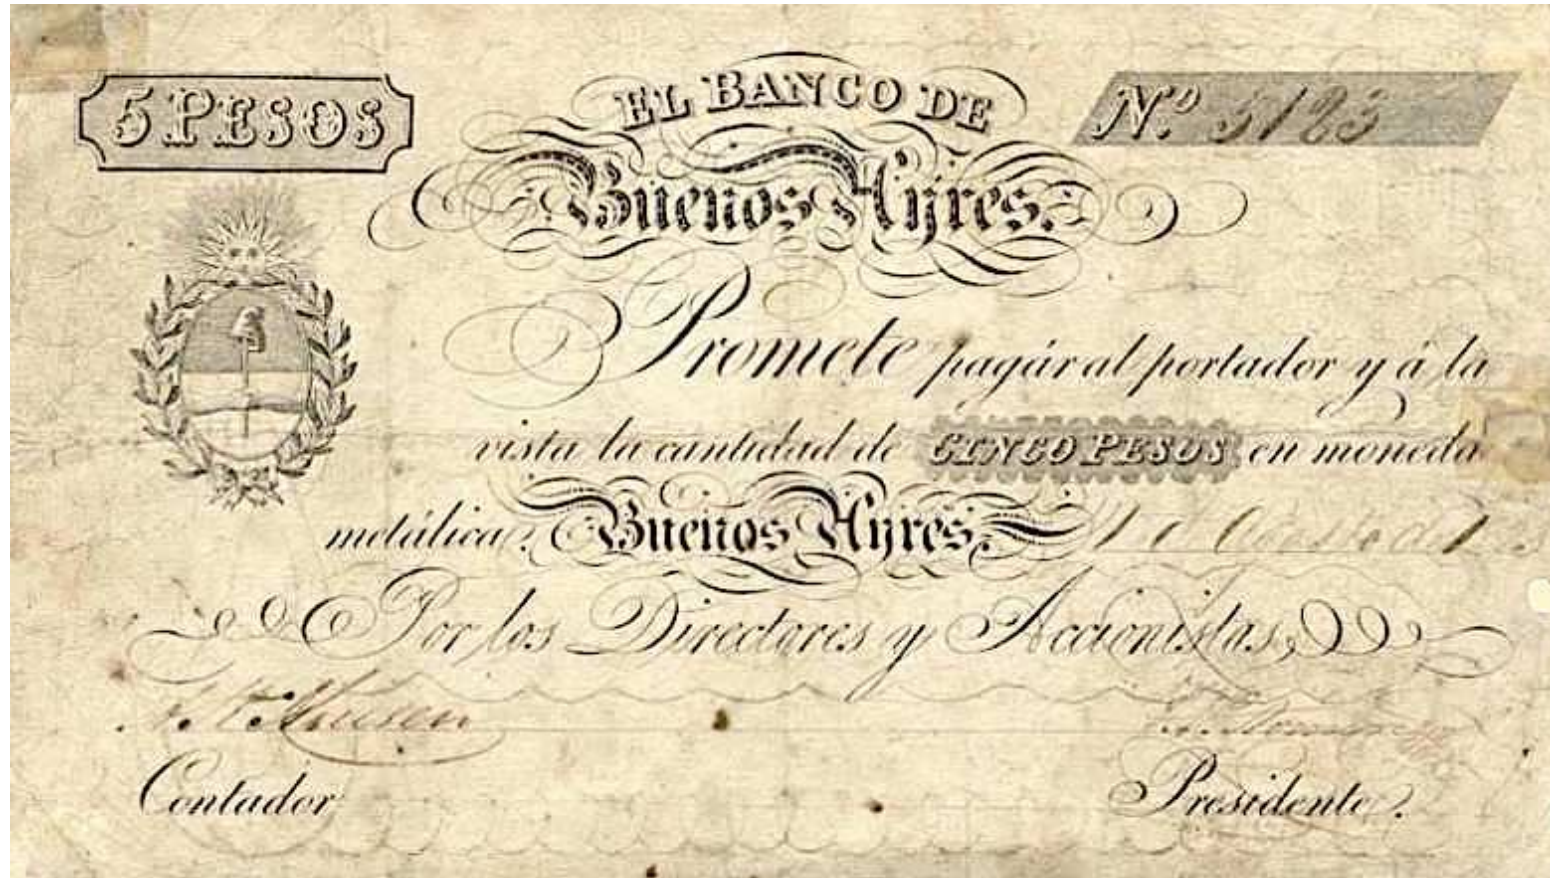 5 PESOS
EL BANCO DE
Nº 5123
Buenos Ayres.
Promete pagár al portador y á la
vista la cantidad de CINCO PESOS en moneda
metálica. Buenos Ayres.
Por los Directores y Accionistas,
Contador
Presidente.